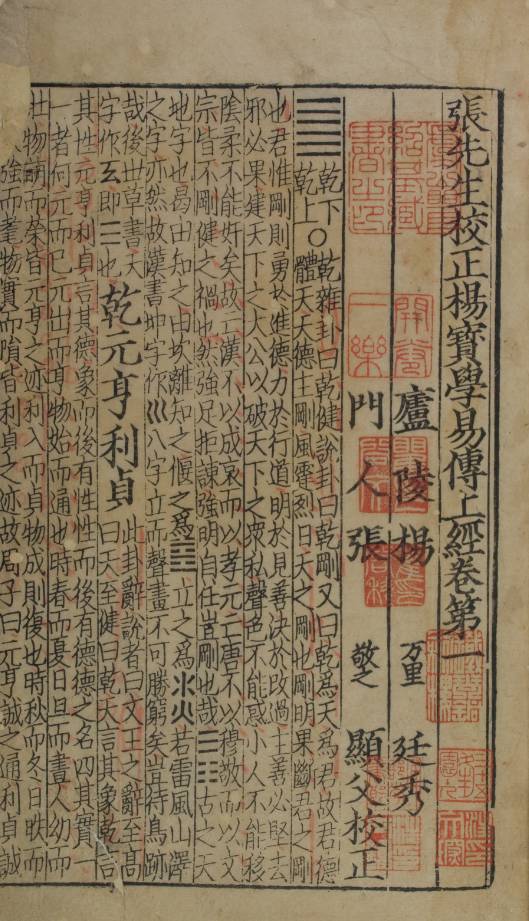 張先生校正楊寶學易傳上經卷第一
廬陵楊 万里 廷秀
門人張 敬之 顯父校正
䷀ 乾下乾上〇乾雜卦曰乾健說卦曰乾剛又曰乾為天為君故君德
體天天德主剛風霆烈日天之剛也剛明果斷君之剛
也君惟剛則勇於進德力於行道明於見善決於改過主善必堅去
邪必果建天下之大公以破天下之衆私聲色不能惑小人不能移
陰柔不能奸矣故二漢不以成哀而以孝元二唐不以穆敬而以文
宗皆不剛健之禍也然強足拒諫強明自任豈剛也哉☰☷古之天
地字也曷由知之由坎離知之偃之為☵☲立之為水火若雷風山澤
之字亦然故漢書坤字作巛八字立而聲畫不可勝窮矣豈待鳥跡
哉後世草書天字作𠀑即☰也 乾元亨利貞 此卦辭說者曰文王之辭至高
曰天至健曰乾天言其象乾言
其性元亨利貞言其德象而後有性性而後有德德之名四其實一
一者何元而已元出而亨物始而通也時春而夏日旦而晝人幼而
壯物萌而榮皆元亨之迹利入而貞物成則復也時秋而冬日昳而
強而耄物實而隕皆利貞之迹故周子曰元亨誠之通利貞誠